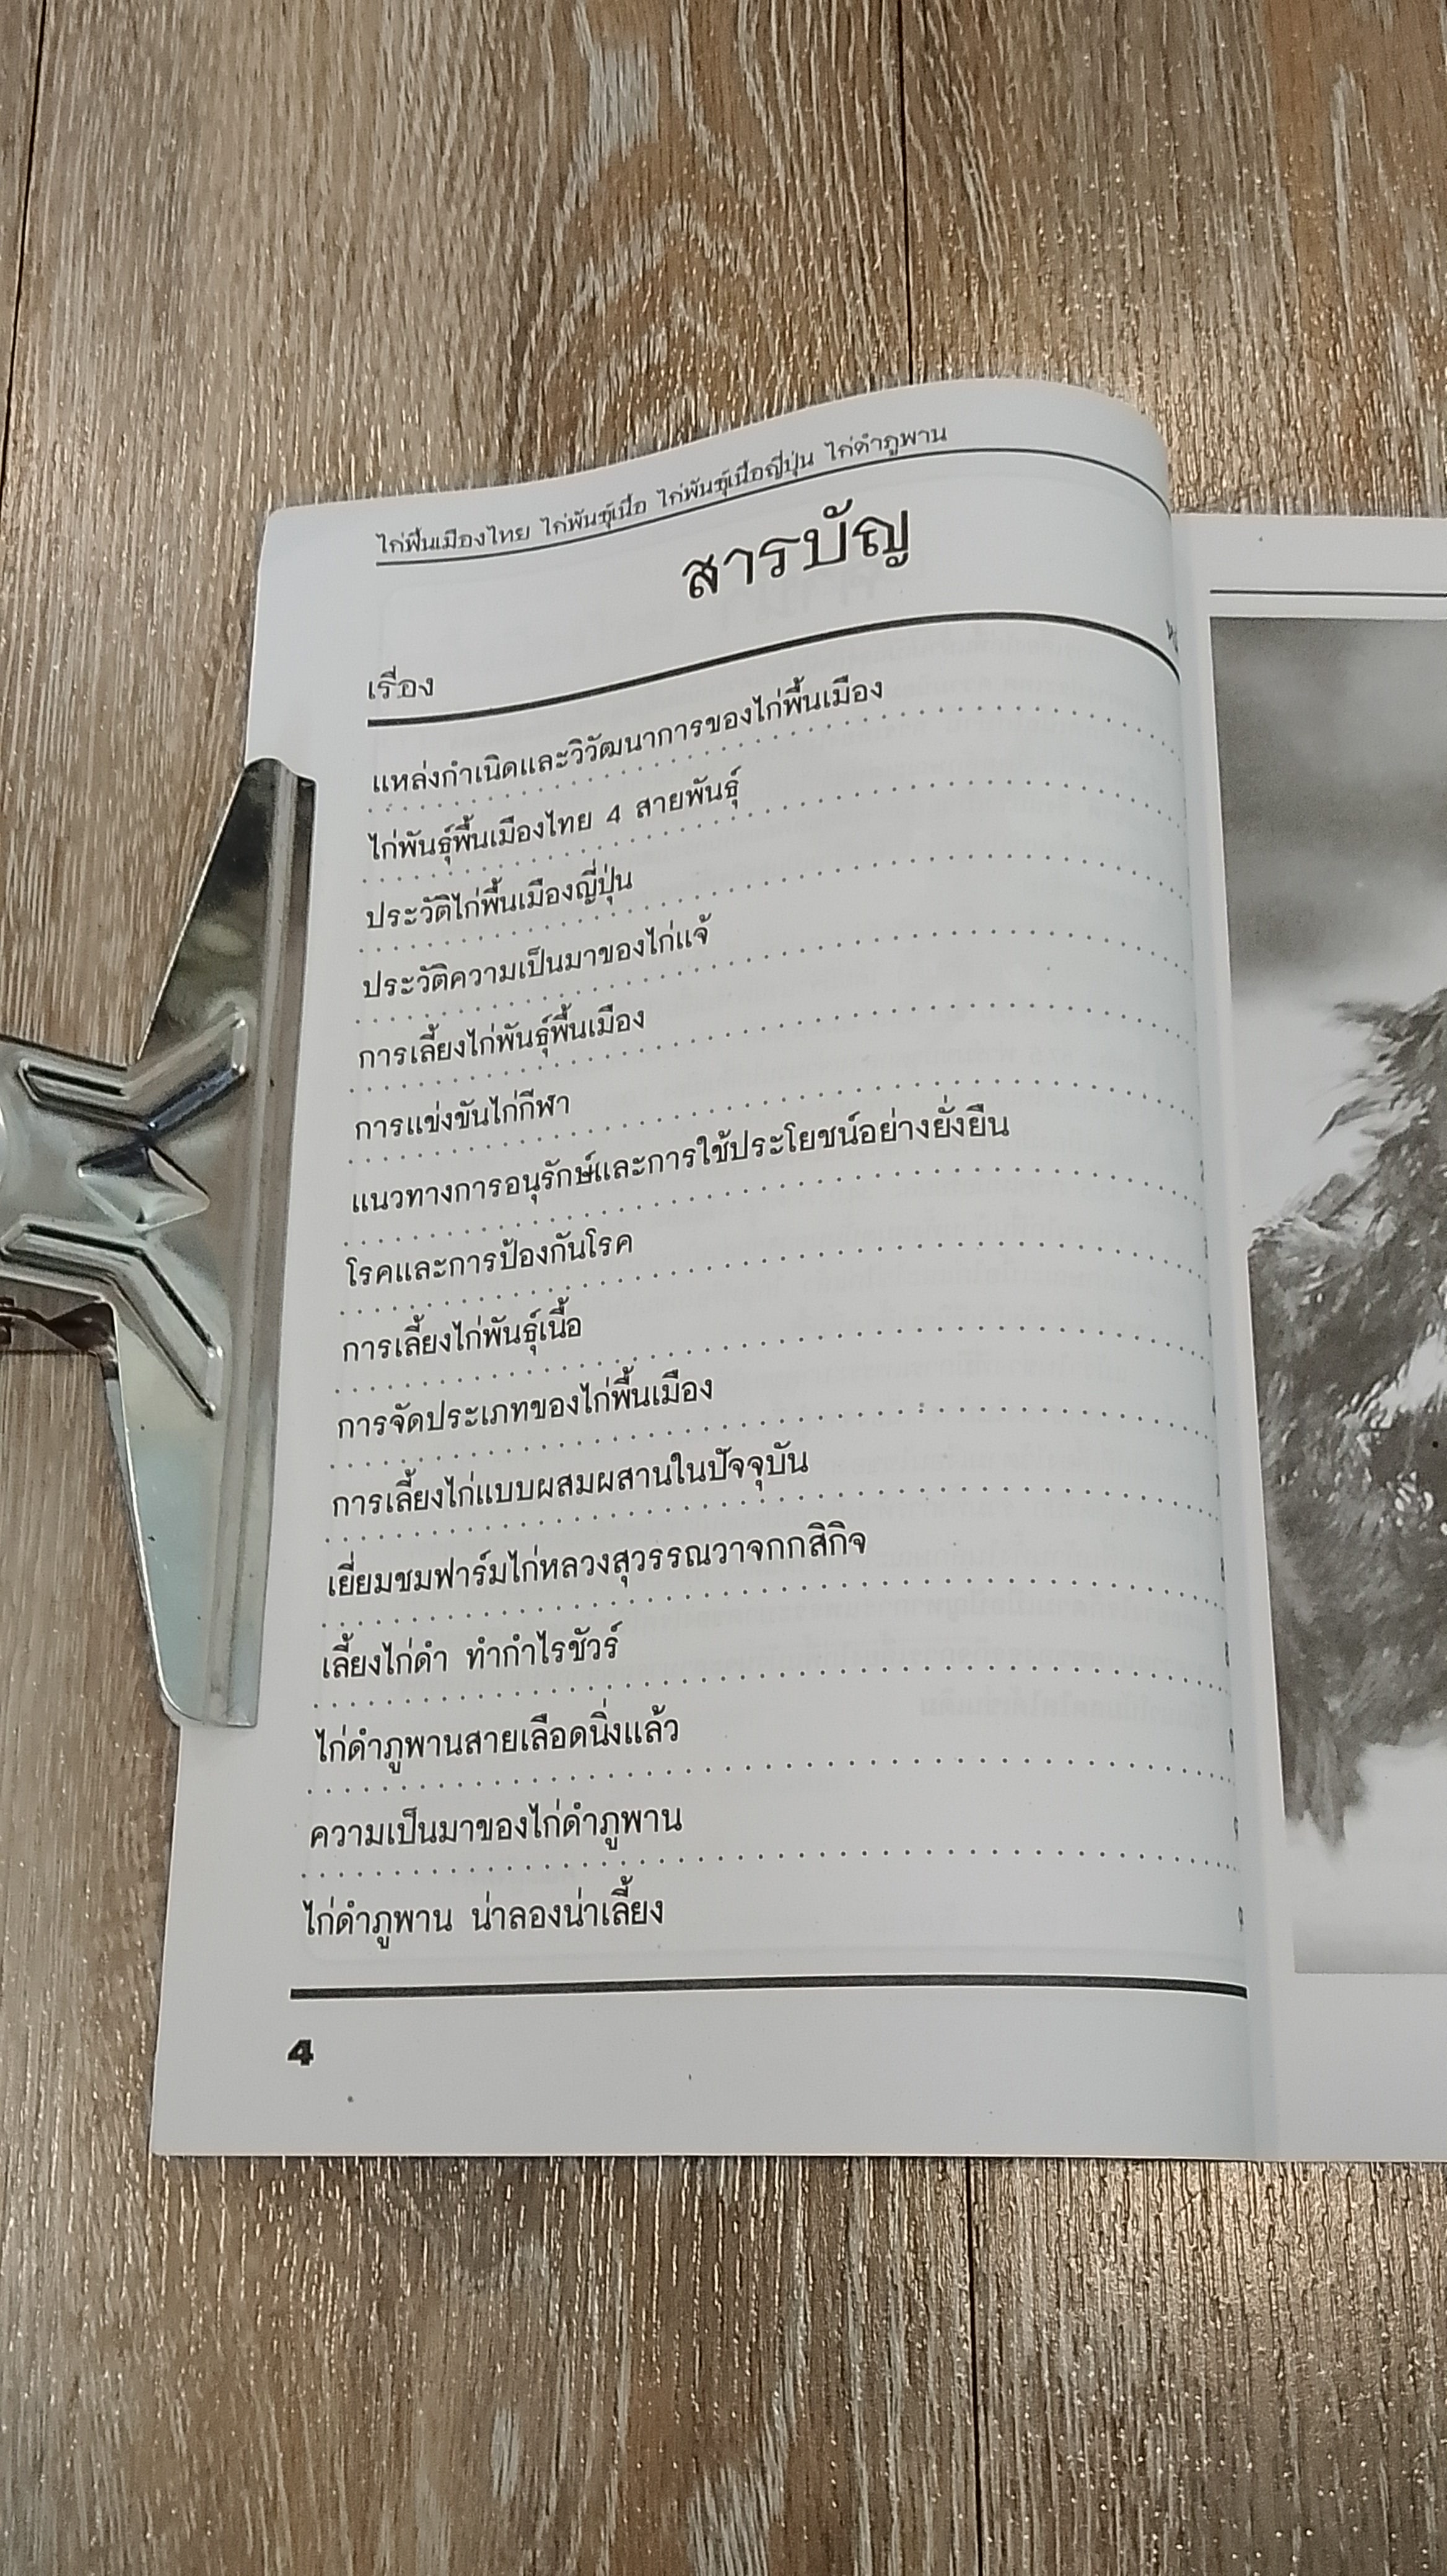 ไก่พื้นเมืองไทย ไก่พันธุ์เนื้อ ไก่พันธุ์เนื้อญี่ปุ่น ไก่ดำภูพาน
สารบัญ
เรื่อง
แหล่งกำเนิดและวิวัฒนาการของไก่พื้นเมือง
ไก่พันธุ์พื้นเมืองไทย 4 สายพันธุ์
ประวัติไก่พื้นเมืองญี่ปุ่น
ประวัติความเป็นมาของไก่แจ้
การเลี้ยงไก่พันธุ์พื้นเมือง
การแข่งขันไก่กีฬา
แนวทางการอนุรักษ์และการใช้ประโยชน์อย่างยั่งยืน
โรคและการป้องกันโรค
การเลี้ยงไก่พันธุ์เนื้อ
การจัดประเภทของไก่พื้นเมือง
การเลี้ยงไก่แบบผสมผสานในปัจจุบัน
เยี่ยมชมฟาร์มไก่หลวงสุวรรณวาจกกสิกิจ
เลี้ยงไก่ดำ ทำกำไรชัวร์
ไก่ดำภูพานสายเลือดนิ่งแล้ว
ความเป็นมาของไก่ดำภูพาน
ไก่ดำภูพาน น่าลองน่าเลี้ยง
4